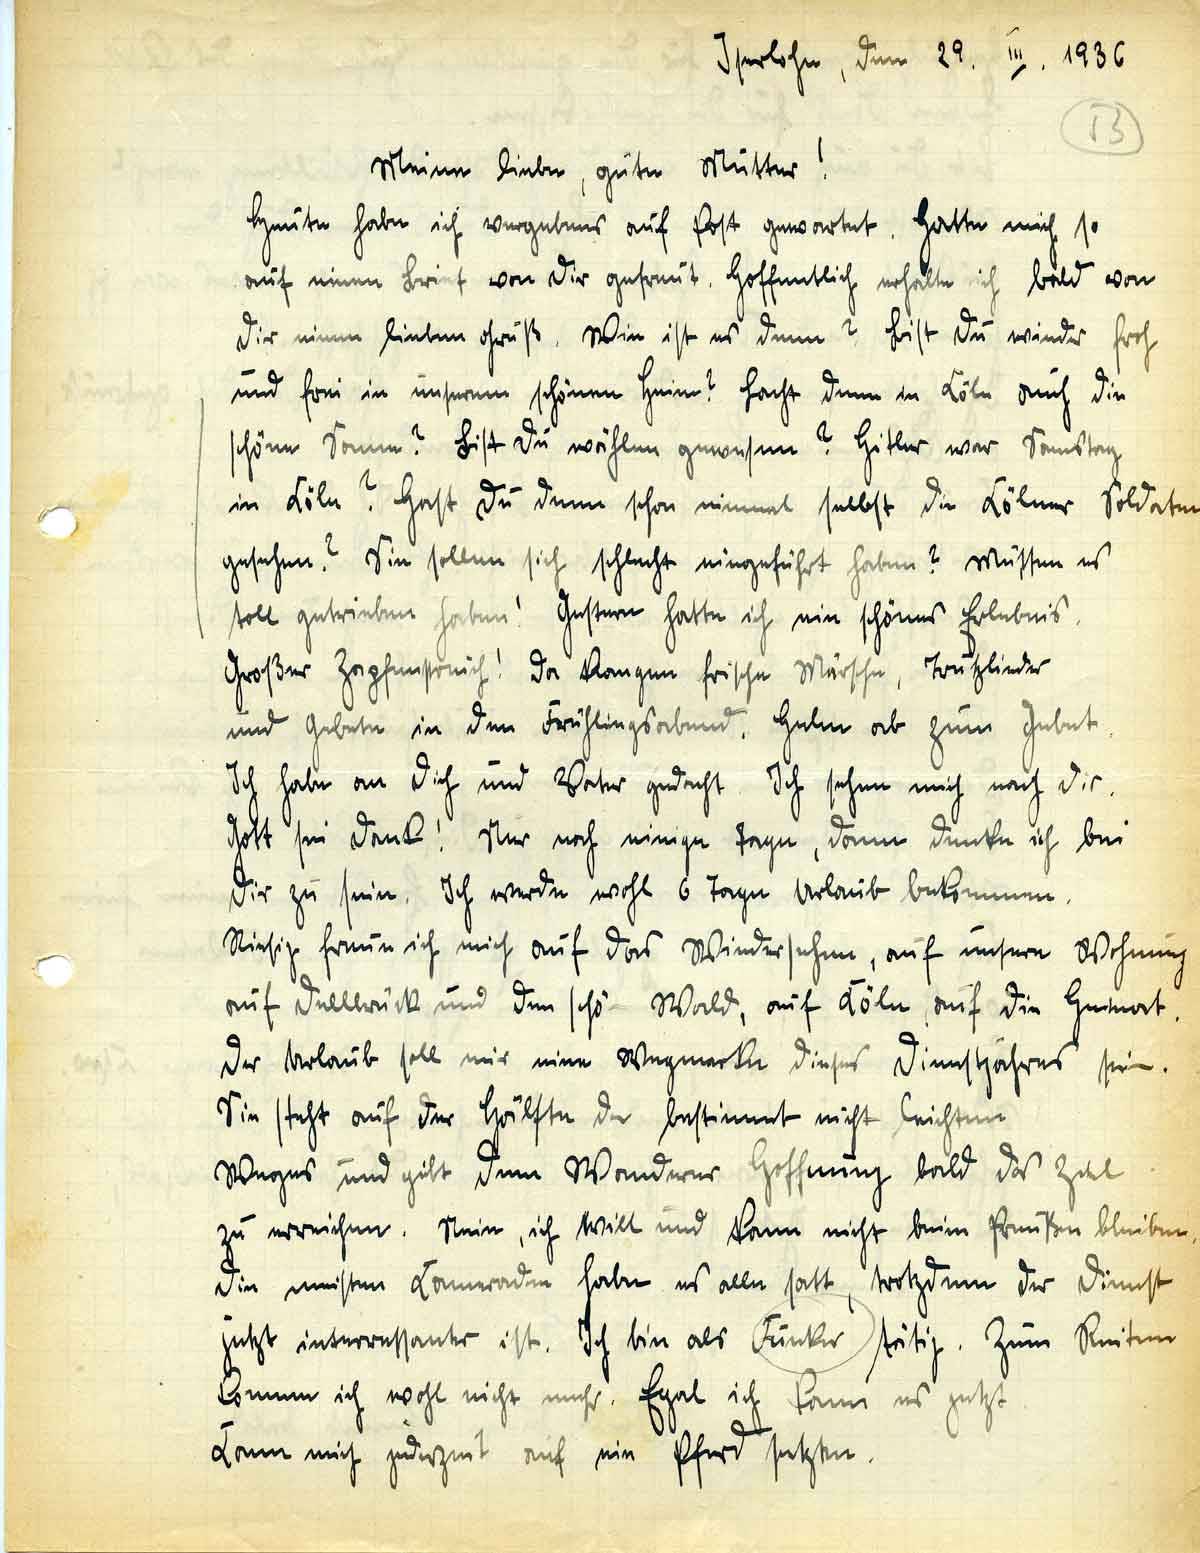 Iserlohn, den 29. III. 1936
13
Meine liebe, gute Mutter!
Heute habe ich vergebens auf Post gewartet. Hatte mich so
auf einen Brief von Dir gefreut. Hoffentlich erhalte ich bald von
Dir einen lieben Gruß. Wie ist es denn? Bist Du wieder froh
und frei in unserem schönen Heim? Lacht denn in Köln auch die
schöne Sonne? Bist Du wählen gewesen? Hitler war Samstag
in Köln? Hast Du denn schon einmal selbst die Kölner Soldaten
gesehen? Sie sollen sich schlecht eingeführt haben? Müssen es
toll getrieben haben! Gestern hatte ich ein schönes Erlebnis.
Großer Zapfenstreich! Da klangen frische Märsche, Trutzlieder
und Gebete in den Frühlingsabend. Helm ab zum Gebet.
Ich habe an Dich und Vater gedacht. Ich sehne mich nach Dir.
Gott sei Dank! Nur noch einige Tage, dann denke ich bei
Dir zu sein. Ich werde wohl 6 Tage Urlaub bekommen.
Riesig freue ich mich auf das Wiedersehen, auf unsere Wohnung
auf Dellbrück und den schö- Wald, auf Köln, auf die Heimat.
Der Urlaub soll mir eine Wegmarke dieses Dienstjahres sein.
Sie steht auf der Hälfte de bestimmt nicht leichten
Weges und gibt dem Wanderer Hoffnung bald das Ziel
zu erreichen. Nein, ich will und kann nicht beim Preußen bleiben.
Die meisten Kameraden haben es alle satt, trotzdem der Dienst
jetzt interressanter ist. Ich bin als Funker tätig. Zum Reiten
komme ich wohl nicht mehr. Egal ich kann es jetzt
Kann mich jederzeit auf ein Pferd setzten.